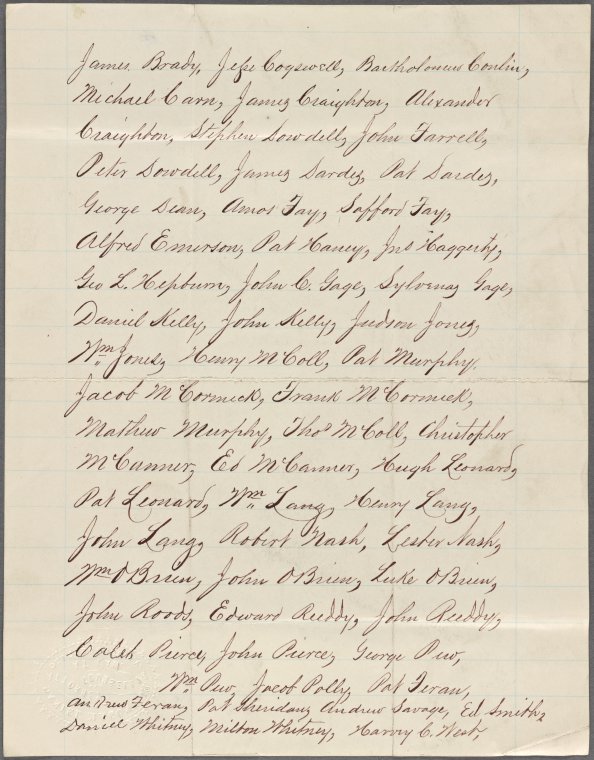 James Brady, Jesse Cogswell, Bartholomew Conlin,
Michael Carn, James Craighton, Alexander
Craighton, Stephen Dowdell, John Farrell,
Peter Dowdell, James Dardes, Pat Dardes,
George Dean, Amos Fay, Safford Fay,
Alfred Emerson, Pat Haney, Jno Haggerty,
Geo L. Hepburn, John C. Gage, Sylvenas Gage,
Daniel Kelly, John Kelly, Judson Jones,
Wm Jones, Henry McColl, Pat Murphy,
Jacob McCormick, Frank McCormick,
Mathew Murphy, Thos McColl, Christopher
McCanner, Ed McCanner, Hugh Leonard,
Pat Leonard, Wm Lang, Henry Lang,
John Lang, Robert Nash, Lester Nash,
Wm O'Brien, John O'Brien, Luke O'Brien,
John Roods, Edward Reddy, John Reddy,
Caleb Pierce, John Pierce, George Pew,
Wm Pew, Jacob Polly, Pat Feran,
Andrew Feran, Pat Sheridan, Andrew Savage, Ed Smith,
Daniel Whitney, Milton Whitney, Harvy C. West,